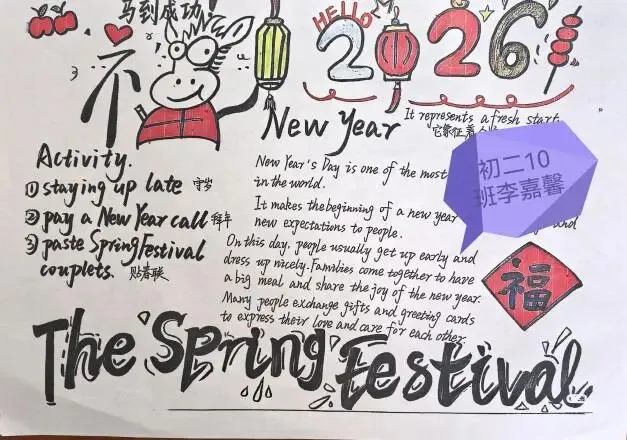 马到成功
HELLO
2026
不
New Year
It represents a fresh start
它象征着
Activity.
① staying up late 守岁
② pay a New Year call 拜年
③ paste Spring Festival
couplets. 贴春联
New Year's Day is one of the most
in the world.
It makes the beginning of a new year
new expectations to people.
On this day, people usually get up early and
dress up nicely. Families come together to have
a big meal and share the joy of the new year.
Many people exchange gifts and greeting cards
to express their love and care for each other.
初二10
班李嘉馨
福
The Spring Festival